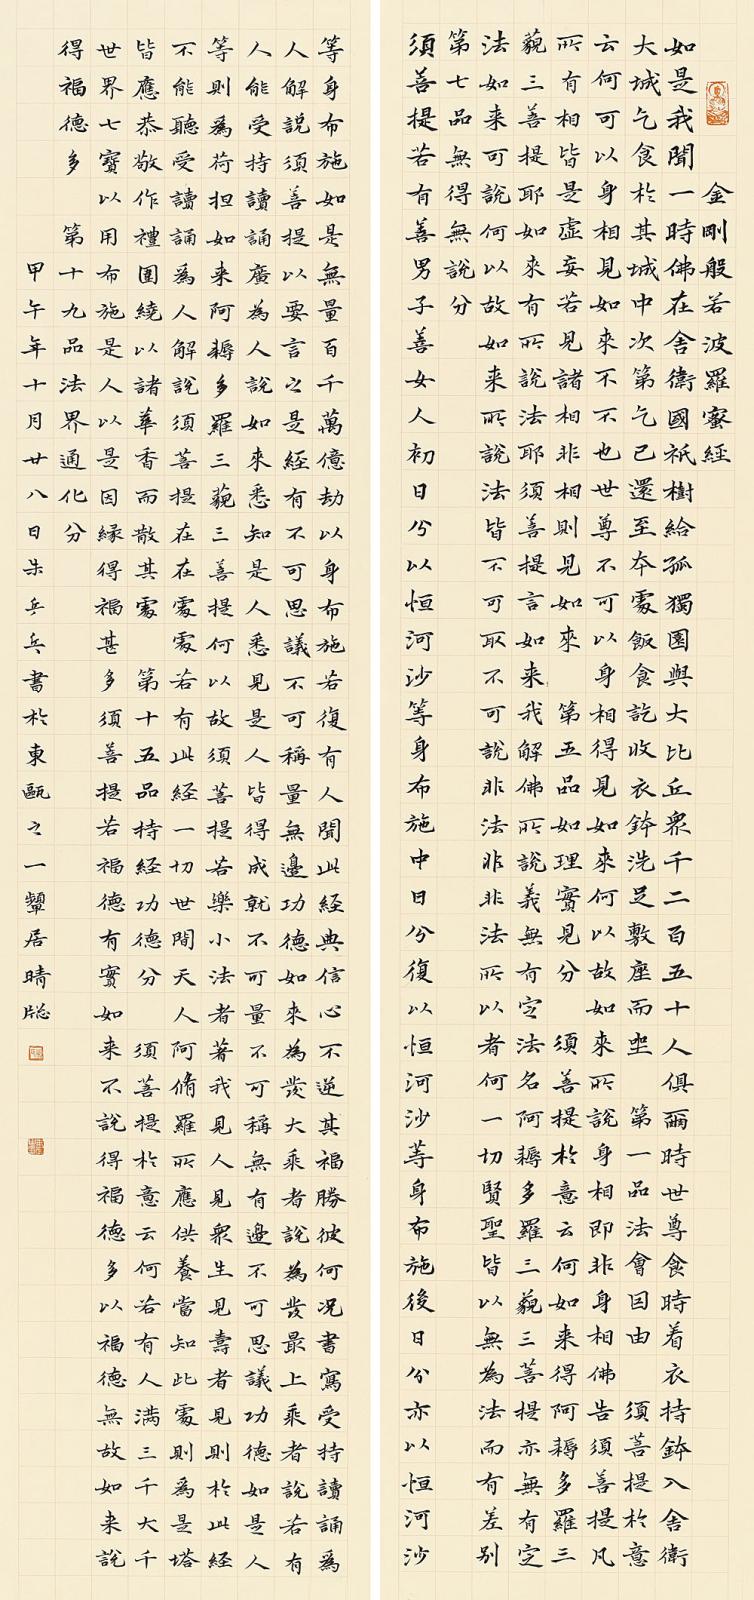 金剛般若波羅蜜經
如是我聞一時佛在舍衛國祇樹給孤獨園與大比丘眾千二百五十人俱爾時世尊食時着衣持鉢入舍衛
大城乞食於其城中次第乞已還至本處飯食訖收衣鉢洗足敷座而坐 第一品法會因由 須菩提於意
云何可以身相見如來不不也世尊不可以身相得見如來何以故如來所說身相即非身相佛告須菩提凡
所有相皆是虛妄若見諸相非相則見如來 第五品如理實見分 須菩提於意云何如来得阿耨多羅三
藐三菩提耶如來有所說法耶須菩提言如来我解佛所說義無有定法名阿耨多羅三藐三菩提亦無有定
法如来可說何以故如来所說法皆不可取不可說非法非非法所以者何一切賢聖皆以無為法而有差別
第七品無得無說分
須菩提若有善男子善女人初日分以恒河沙等身布施中日分復以恒河沙等身布施後日分亦以恒河沙
等身布施如是無量百千萬億劫以身布施若復有人聞此經典信心不逆其福勝彼何况書寫受持讀誦為
人解說須菩提以要言之是經有不可思議不可稱量無邊功德如來為發大乘者說為發最上乘者說若有
人能受持讀誦廣為人說如来悉知是人悉見是人皆得成就不可量不可稱無有邊不可思議功德如是人
等則為荷担如来阿耨多羅三藐三菩提何以故須菩提若樂小法者著我見人見眾生見壽者見則於此經
不能聽受讀誦為人解說須菩提在在處處若有此經一切世間天人阿脩羅所應供養當知此處則為是塔
皆應恭敬作禮圍繞以諸華香而散其處 第十五品持經功德分 須菩提於意云何若有人滿三千大千
世界七寶以用布施是人以是因緣得福甚多須菩提若福德有實如来不說得福德多以福德無故如来說
得福德多 第十九品法界通化分
甲午年十月廿八日朱兵兵書於東甌之一居晴窓